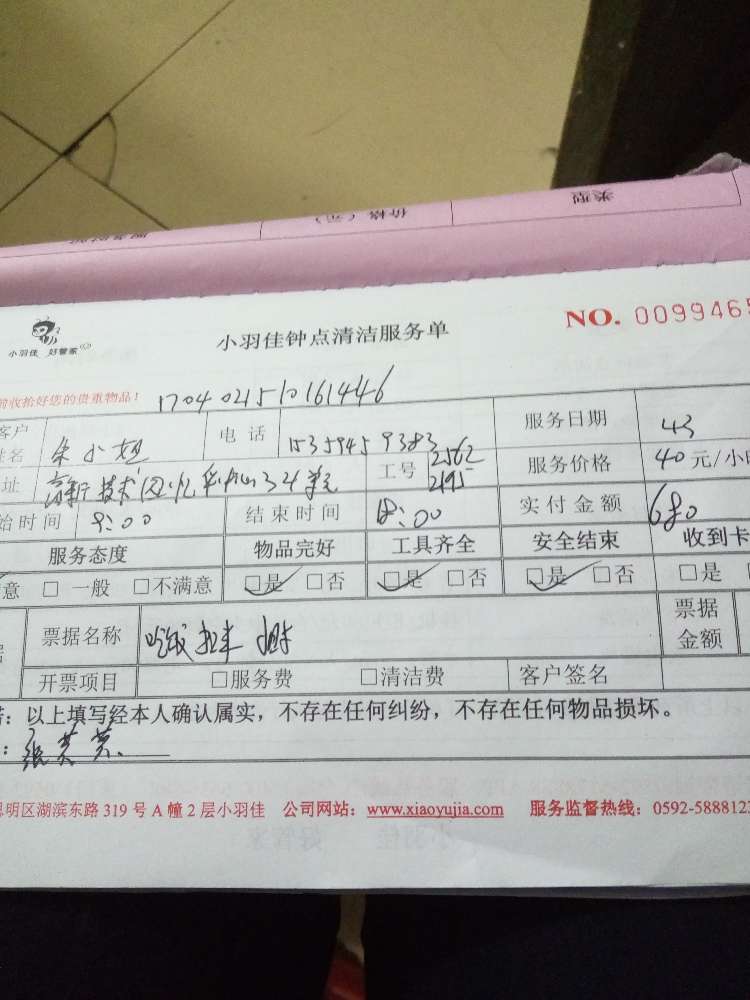 类型
价格（元）
小羽佳 好管家
小羽佳钟点清洁服务单
NO. 0099465
前收拾好您的贵重物品！
1704021510161446
客户姓名 朱小姐 电话 15359459383 服务日期 4.3
址 工号 2562 2195 服务价格 40 元/小时
始时间 9:00 结束时间 18:00 实付金额 680
服务态度 物品完好 工具齐全 安全结束 收到卡
意 □一般 □不满意 □是 □否 □是 □否 □是 □否 □是
票据名称 票据金额
开票项目 □服务费 □清洁费 客户签名
：以上填写经本人确认属实，不存在任何纠纷，不存在任何物品损坏。
：张芙蓉
思明区湖滨东路 319 号 A 幢 2 层小羽佳 公司网站：www.xiaoyujia.com 服务监督热线：0592-5888123